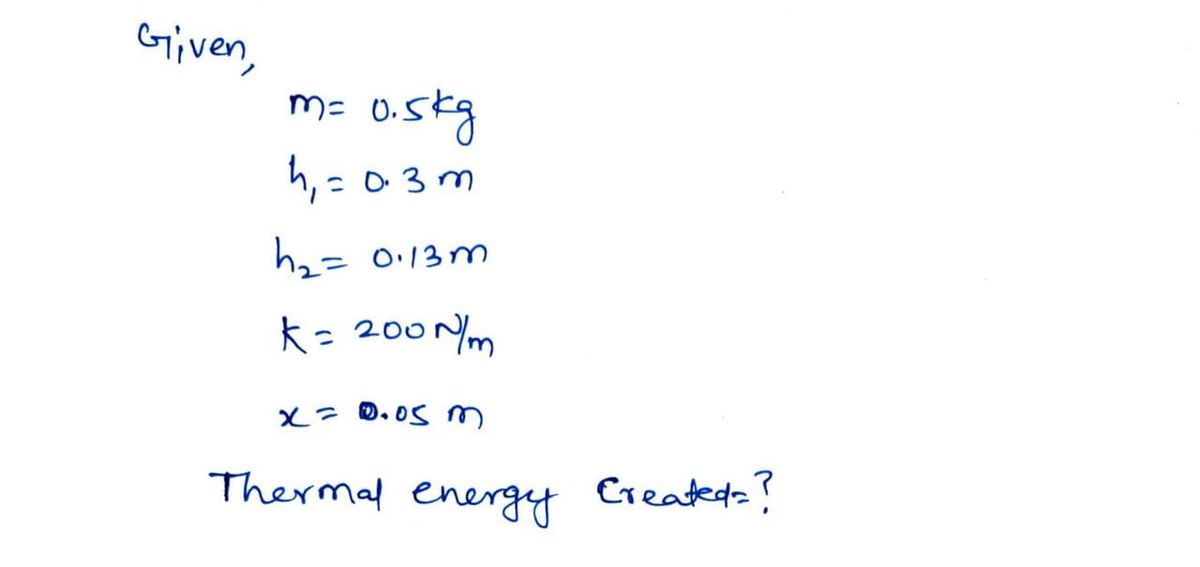 Given,
m= 0.5kg
h₁= 0.3 m
h₂= 0.13m
k= 200 N/m
x= 0.05 m
Thermal energy Created=?